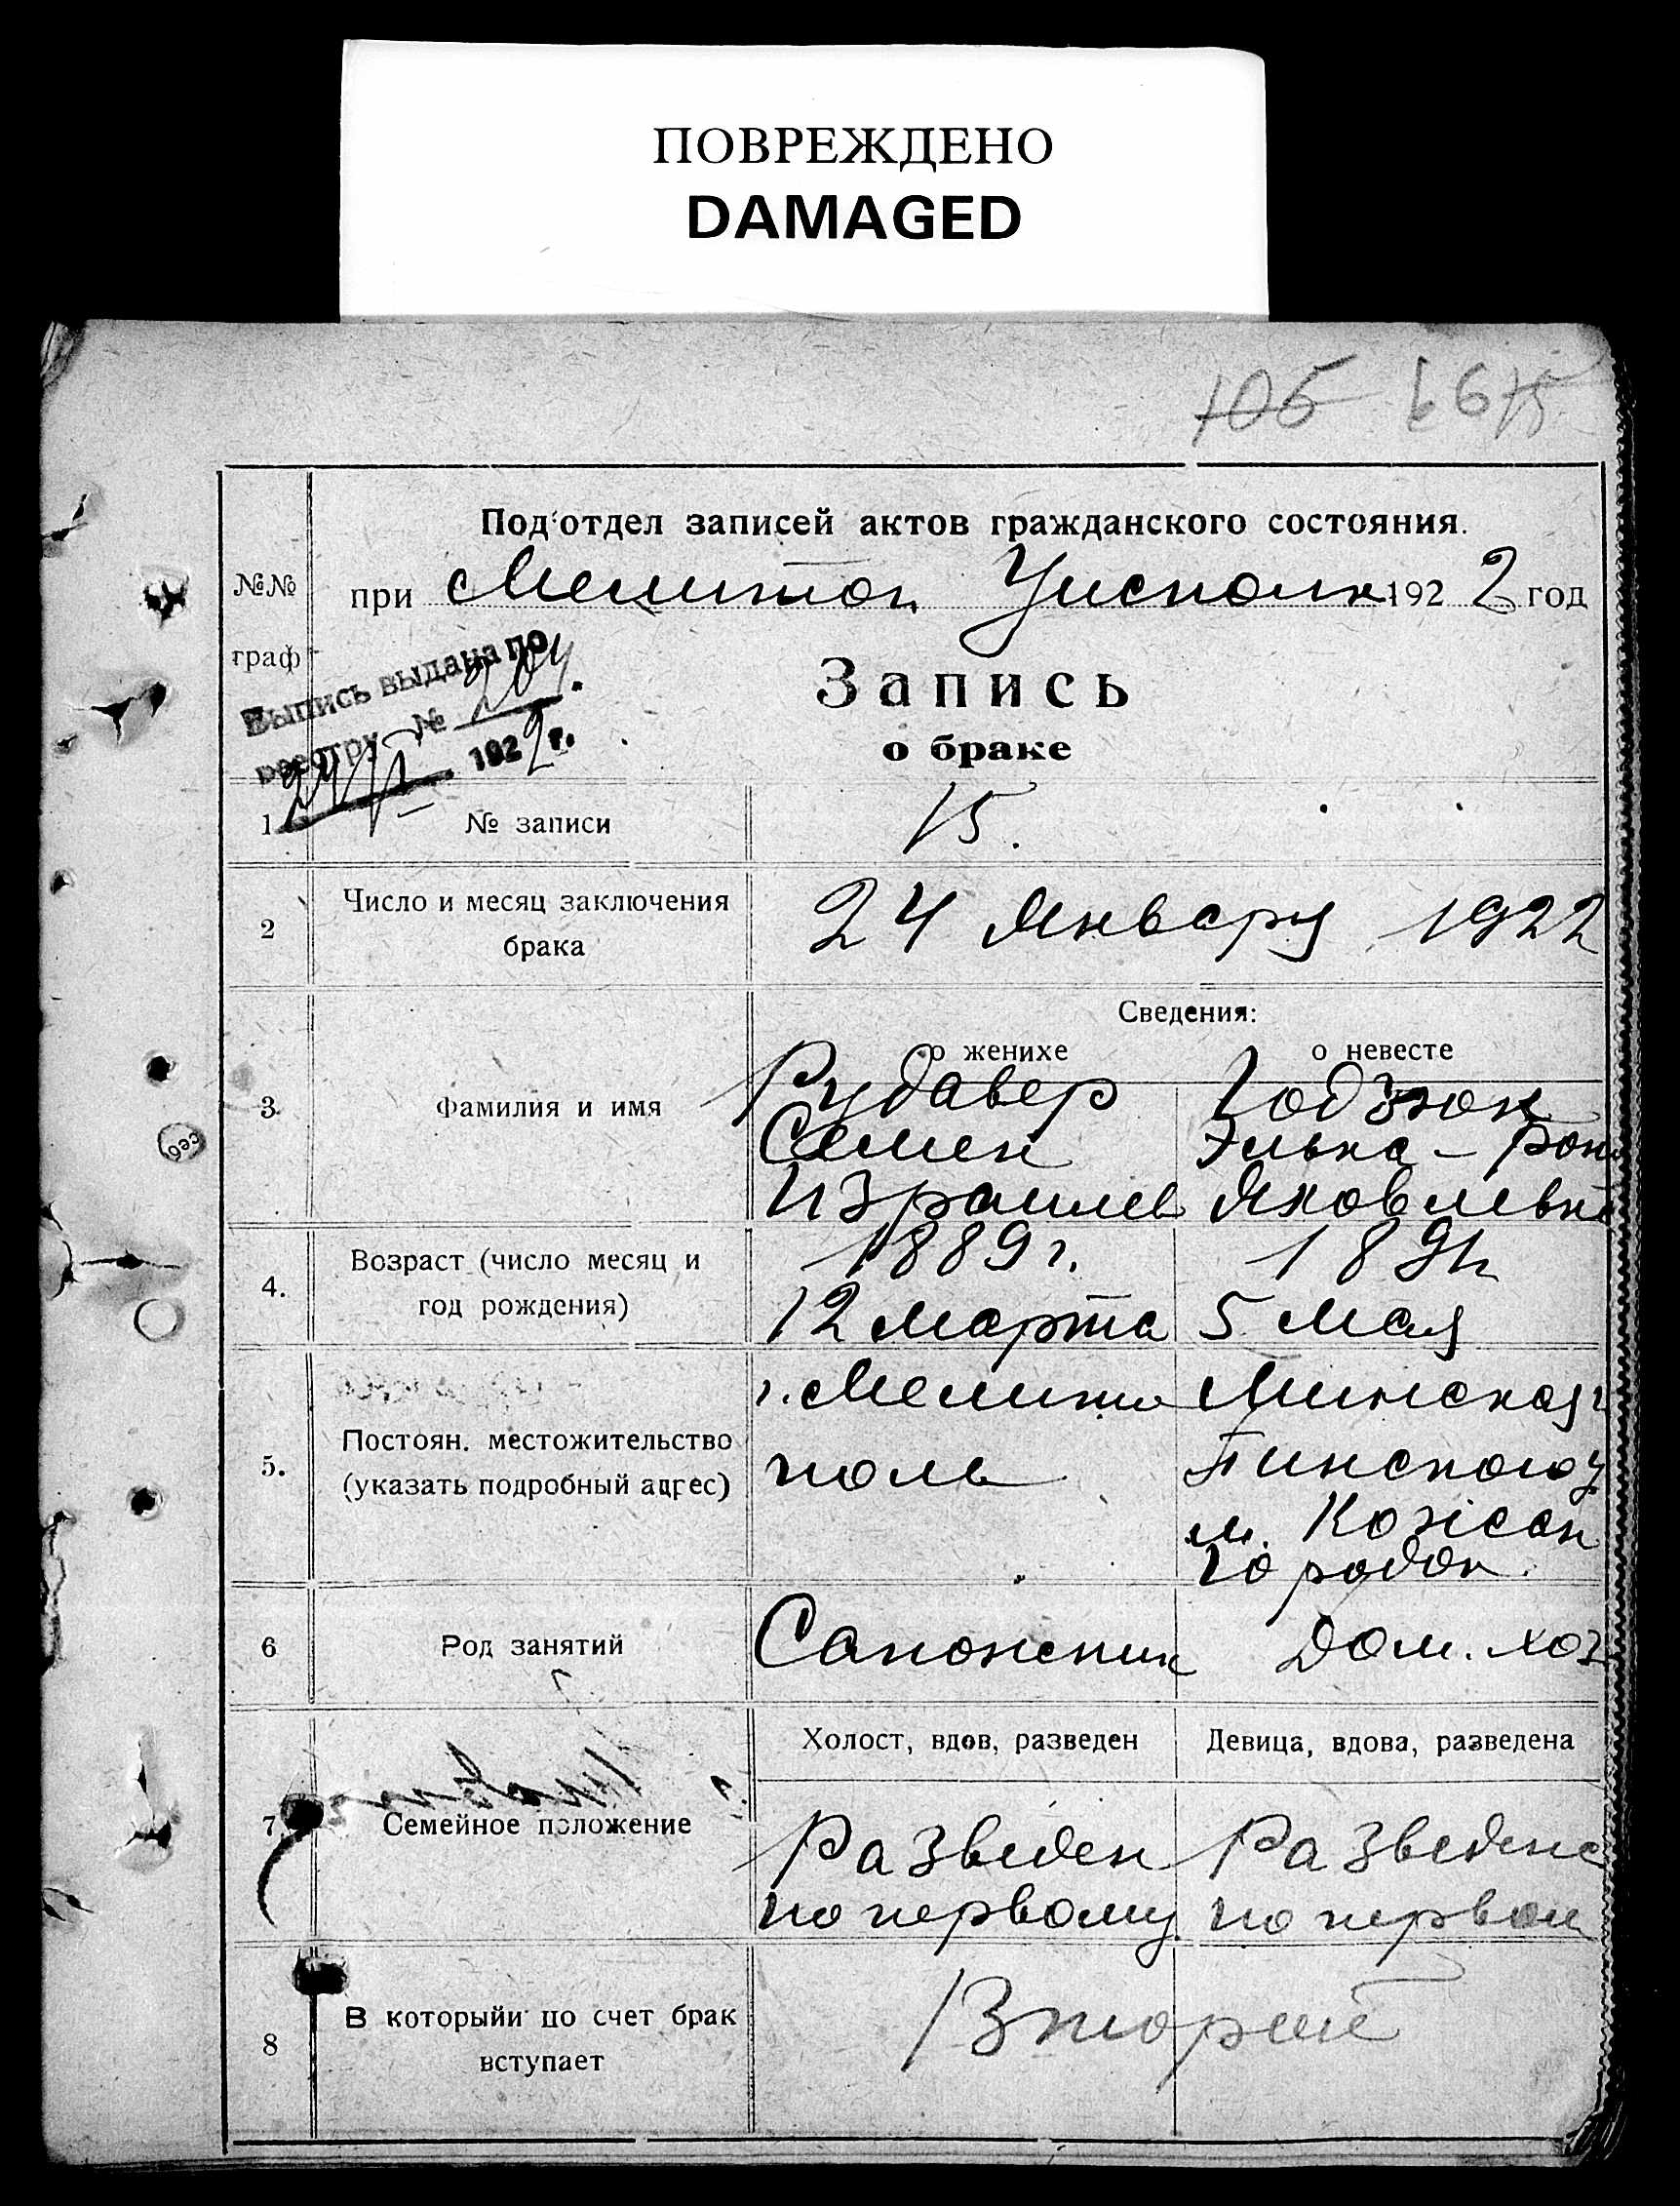 ПОВРЕЖДЕНО
DAMAGED
106
Под'отдел записей актов гражданского состояния.
№№
граф
при Мелитоп. Уисполк 1922 год
Выпись выдана по
реестру № 204.
1922 г.
Запись
о браке
1. № записи 15.
2 Число и месяц заключения
брака
24 Январу 1922
Сведения:
о женихе о невесте
3. Фамилия и имя
Рудавер
Семен Элька -
Израилев Яковлевна
4. Возраст (число месяц и
год рождения)
1889 г.
12 марта 5 мая
5. Постоян. местожительство
(указать подробный адрес)
г. Мелито Минская г
поль Пинского у
м. Кожан
городок.
6 Род занятий Сапожник Дом. хоз
7. Семейное положение
Холост, вдов, разведен Девица, вдова, разведена
Разведен Разведена
по первому по первом
8 В которыйи по счет брак
вступает
Вторый